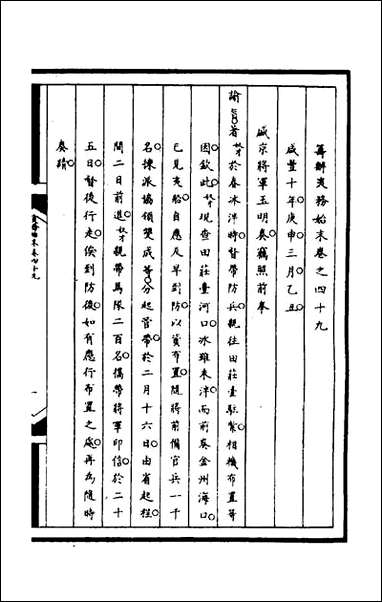 籌辦夷務始末卷之四十九
咸豐十年庚申三月乙丑
盛京將軍玉明奏竊照前奉
諭著奴才於春冰泮時督帶防兵親往田莊臺駐紮相機布置等
因欽此奴才現查田莊臺河口冰雖未泮而前岸金州海口
已見夷船自應及早到防以資布置隨將前備官兵一千
名揀派協領雙成等分起管帶於二月十六日由省起程
間二日前進奴才親帶馬隊二百名攜帶將軍印信於二十
五日督後行走俟到防後如有應行布置之處再為隨時
奏請